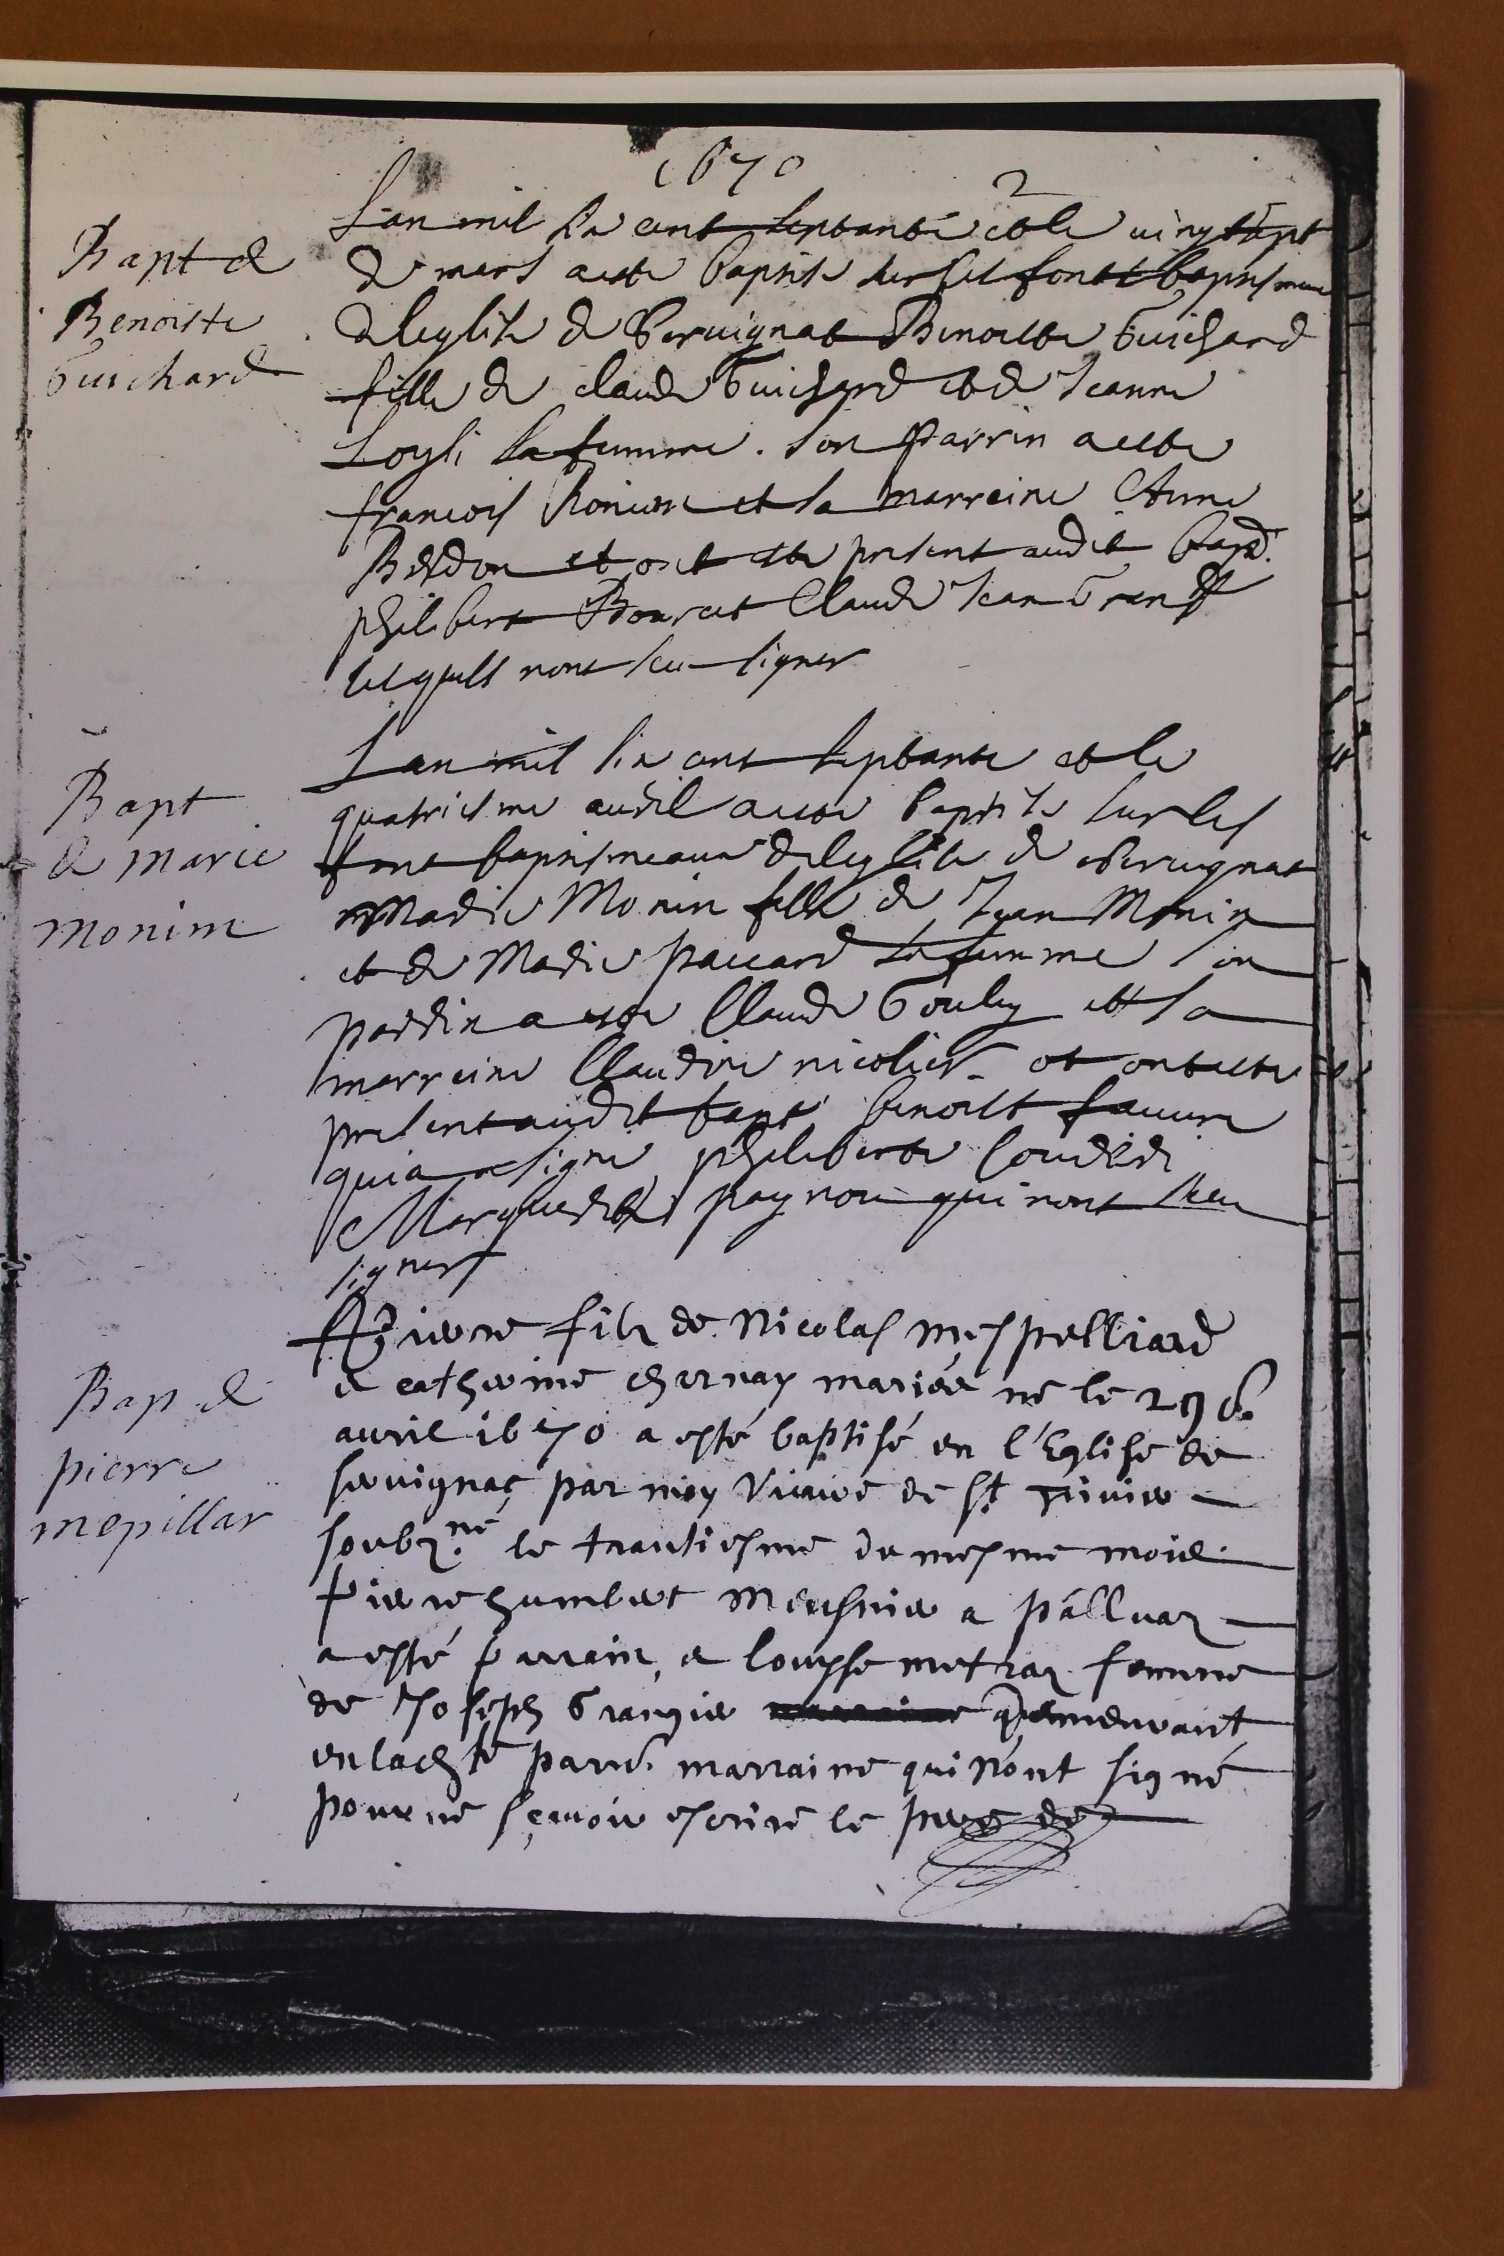 1670
2
Bapt de
Benoiste
Guichard
L'an mil six cent septante et le vingt sept
de mars a este baptise sur les fonts baptismaux
de leglise de Servignat Benoiste Guichard
fille de claude Guichard et de Jeanne
sa femme . son parrin a este
francois et sa marreine Anne
et ont este present audit bapt.
philibert Claude Jean
lesquels nont sceu signer
Bapt
de marie
monim
L an mil six cent septante et le
quatriesme avril a este baptise sur les
font baptismeaux de leglise de Servignat
Marie Monin fille de Jean Monin
et de Marie paccard sa femme son
parrin a este Claude Gouly et sa
marreine Claudine nicolier et ont este
present audit bapt benoist faure
qui a signe philiberte
Marguerite paynou qui nont sceu
signer
Bap de
pierre
mepillar
Pierre filz de Nicolas mespelliard
e catherine charnay mariés né le 29e
avril 1670 a esté baptisé en l'Eglise de
servignaç par moy Vicaire de St. trivier
soubz.né le trantiesme du mesme mois.
Pierre humbert Meusnier a pálluaz
a esté parrain, e louyse metraz femme
de Joseph Grangier demeurant
en lachte parr. marraine qui n'ont signé
pour ne sçavoir escrire le pere de